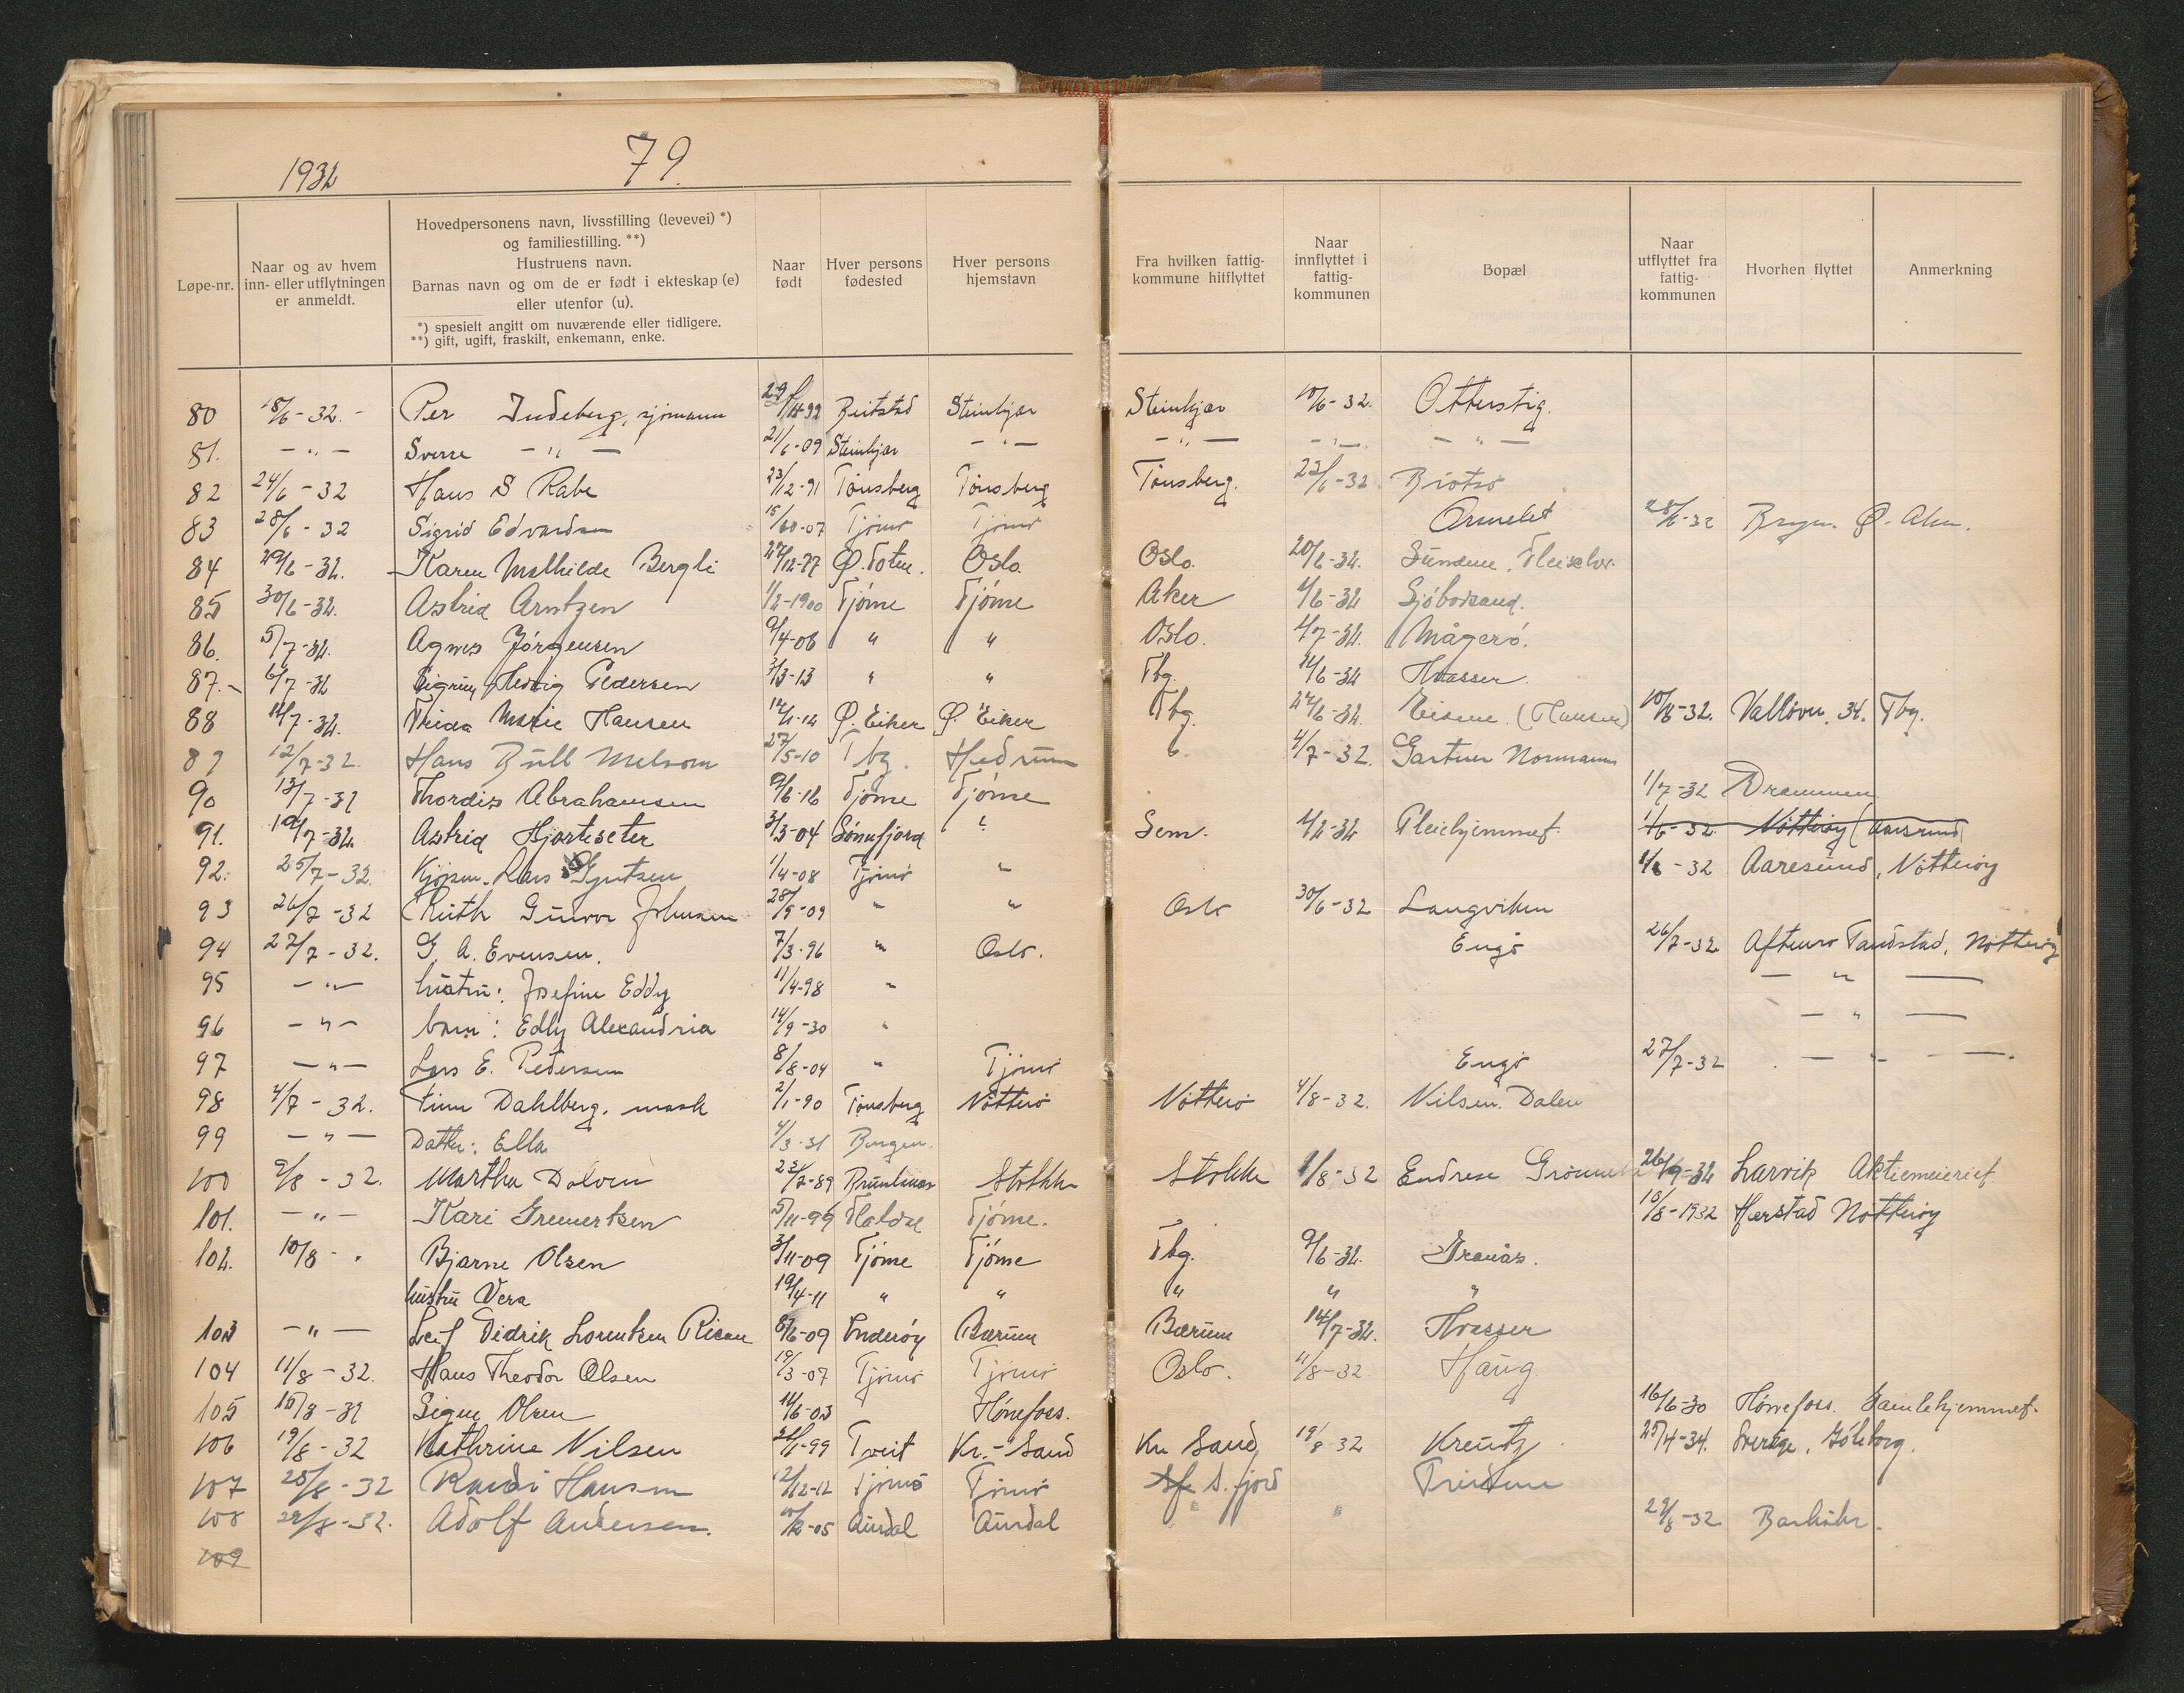 1932
79.
Løpe-nr.
Naar og av hvem inn- eller utflytningen er anmeldt.
Hovedpersonens navn, livsstilling (levevei) *) og familiestilling. **)
Hustruens navn.
Barnas navn og om de er født i ekteskap (e) eller utenfor (u).
*) spesielt angitt om nuværende eller tidligere.
**) gift, ugift, fraskilt, enkemann, enke.
Naar født
Hver persons fødested
Hver persons hjemstavn
Fra hvilken fattigkommune hitflyttet
Naar innflyttet i fattigkommunen
Bopæl
Naar utflyttet fra fattigkommunen
Hvorhen flyttet
Anmerkning
80 18/6-32. - Per Indeberg, sjømann Beitstad Steinkjær Steinkjær 10/6-32. Otterstig.
81. - " - Sverre - " - 21/6-09 Steinkjær - " - - " - - " - - " -
82 24/6-32 Hans S Rabe 23/12-91 Tønsberg Tønsberg Tønsberg. 23/6-32 Brøtsø
83 28/6-32 Sigrid Edvardsen Tjømø Tjømø Ormelet 28/6-32
84 29/6-32. Karen Mathilde Bergli 27/12-77 Ø. Toten. Oslo. Oslo. 20/6-32. Sundene,
85 30/6-32. Astrid Arntzen 1/2-1900 Tjøme Tjøme Aker 1/6-32 Sjøbodsand.
86. 5/7-32. Agnes Jørgensen 9/4-06 " " Oslo. 1/7-32. Mågerø.
87. - 6/7-32 Sigrun Hedvig Pedersen 3/3-13 " " Tbg. Hvasser.
88 12/7-32. Frida Marie Hansen 12/1-12 Ø. Eiker Ø. Eiker Tbg. 27/6-32. (Hansen) 10/8-32. Valløvn. 34. Tbg.
89 12/7-32. Hans Bull Melsom 27/5-10 Tbg. Hedrum " 4/7-32. Gartner Normann
90 13/7-32 Thordis Abrahamsen 9/6-16 Tjøme Tjøme 1/7-32 Drammen
91. 19/7-32. Astrid Hjorteseter 3/3-04 Sønnfjord " Sem. 1/2-32 Pleiehjemmet. 1/6-32. Nøtterøy (Aarsrund)
92. 25/7-32. 1/4-08 Tjømø " 1/6-32 Aaresund, Nøtterøy
93 26/7-32 Ruth Gunvor Johnsen 28/9-09 " " Oslo 30/6-32 Langviken
94 27/7-32. G. A. Evensen. 7/3-96 " Oslo. Engø 26/7-32 Nøtterøy
95 - " - hustru: Josefine Eddy 11/4-98 " - " -
96 - " - barn: Edly Alexandria 14/9-30 " - " -
97 - " - Lars E. Pedersen 8/8-04 " Tjømø Engø 27/7-32 - " -
98 4/7-32. Finn Dahlberg, mask 2/1-90 Tønsberg Nøtterø Nøtterø 4/8-32. Nilsen. Dalen
99 - " - Datter: Ella 4/3-31 Bergen.
100 9/8-32. Martha Dalven 23/7-89 Brunlanes Stokke Stokke 1/8-32 Endresen 26/9-32 Larvik Aktiemeieriet.
101. - " - Kari Gremertsen 5/11-99 Halden Tjøme. 10/8-1932 Herstad Nøtterøy
102. 10/8- " Bjarne Olsen 3/11-09 Tjøme Tjøme Tbg. 9/6-32. Granås.
hustru Vera 19/4-11 " " " " "
103 - " - Leif Didrik Lorentzen Risan 8/6-09 Inderøy Bærum Bærum 14/7-32. Hvasser
104 11/8-32. Hans Theodor Olsen 19/3-07 Tjømø Tjømø Oslo. 11/8-32. Haug
105 15/8-32 Signe Olsen 14/6-03 Hønefoss. 16/6-30 Hønefoss. Gamlehjemmet.
106 19/8-32 Kathrine Nilsen Tveit Kr.-Sand Kr. Sand 19/8-32 Kreutz. 25/4-34. Sverige, Gøteborg.
107 25/8-32 Randi Hansen 12/12-12 Tjømø Tjømø S. fjord
108 29/8-32. Adolf Andersen. Aurdal Aurdal " " 29/8-32
109